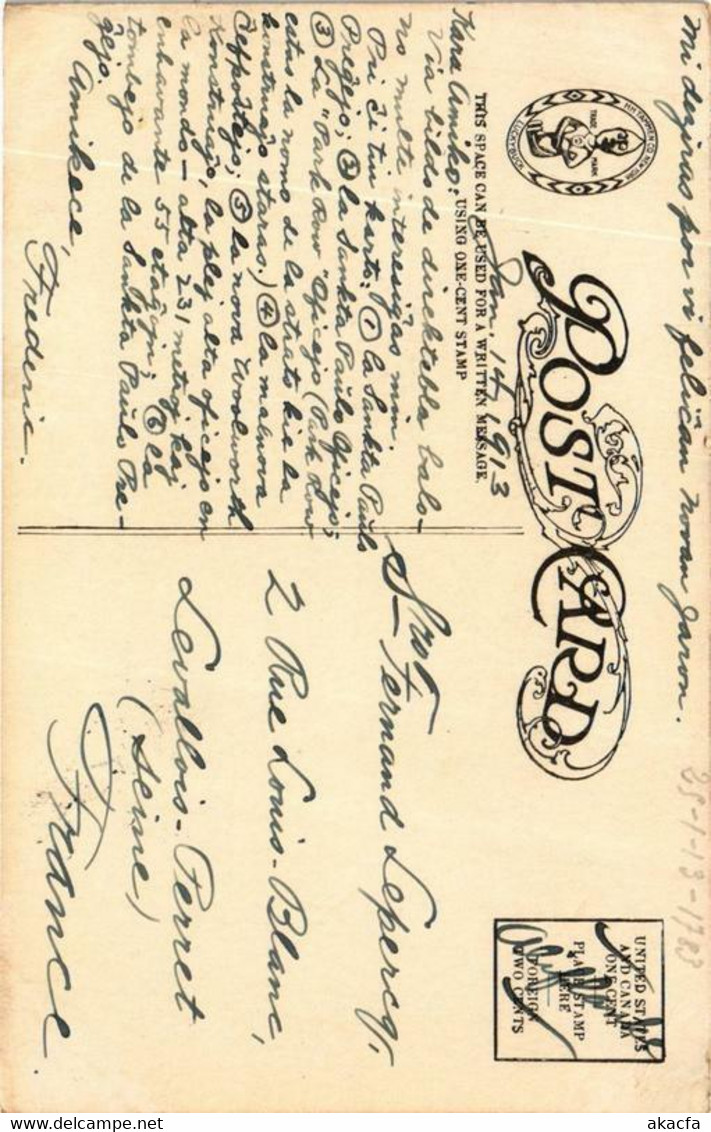 Mi deziras por vi feliĉan novan jaron.
25-1-13-1783
H.H. TAMMEN CO. NEW YORK
TRADE MARK
POST CARD
THIS SPACE CAN BE USED FOR A WRITTEN MESSAGE
USING ONE-CENT STAMP
Jan. 14, 1913
Kara Amiko:
Via bildo de direktebla balo-
no multe interesigas min.
Pri ĉi tiu karto: ① la Sankta Paŭlo
Preĝejo; ② la Sankta Paŭlo Oficejo;
③ La "Park Row" Oficejo (Park Row
estas la nomo de la strato kie la
konstruejo staras.) ④ la malnova
Ĉefpoŝtejo; ⑤ la nova Woolworth
Konstruejo, la plej alta oficejo en
la mondo — alta 231 metroj kaj
enhavante 55 etaĝojn; ⑥ la
tombejo de la Sankta Paŭlo Pre-
ĝejo.
Amikece,
Frederic.
UNITED STATES
AND CANADA
ONE CENT
PLACE STAMP
HERE
FOREIGN
TWO CENTS
Fernand Lepercq,
2 Rue Louis-Blanc,
Levallois-Perret
(Seine)
France.